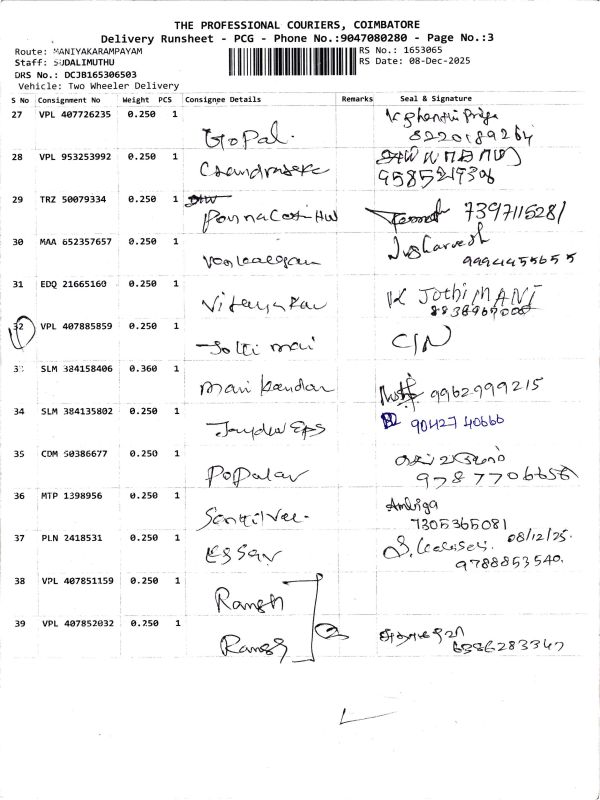 THE PROFESSIONAL COURIERS, COIMBATORE
Delivery Runsheet - PCG - Phone No.:9047080280 - Page No.:3
Route: MANIYAKARAMPAYAM RS No.: 1653065
Staff: SUDALIMUTHU RS Date: 08-Dec-2025
DRS No.: DCJB165306503
Vehicle: Two Wheeler Delivery
S No Consignment No Weight PCS Consignee Details Remarks Seal & Signature
27 VPL 407726235 0.250 1 Gopal.
8220189264
28 VPL 953253992 0.250 1
29 TRZ 50079334 0.250 1 7397115281
30 MAA 652357657 0.250 1
9994455655
31 EDQ 21665160 0.250 1 K JothiMANI
32 VPL 407885859 0.250 1 Jothi mai C/N
33 SLM 384158406 0.360 1 Manikandan 9962999215
34 SLM 384135802 0.250 1 90427 40666
35 CDM 50386677 0.250 1 Popalar
9787706656
36 MTP 1398956 0.250 1 Senthilvel Ambiga
7305365081
37 PLN 2418531 0.250 1 ESSAR 08/12/25.
9788853540.
38 VPL 407851159 0.250 1 Ramesh
39 VPL 407852032 0.250 1 Ramesh 2
6386283347